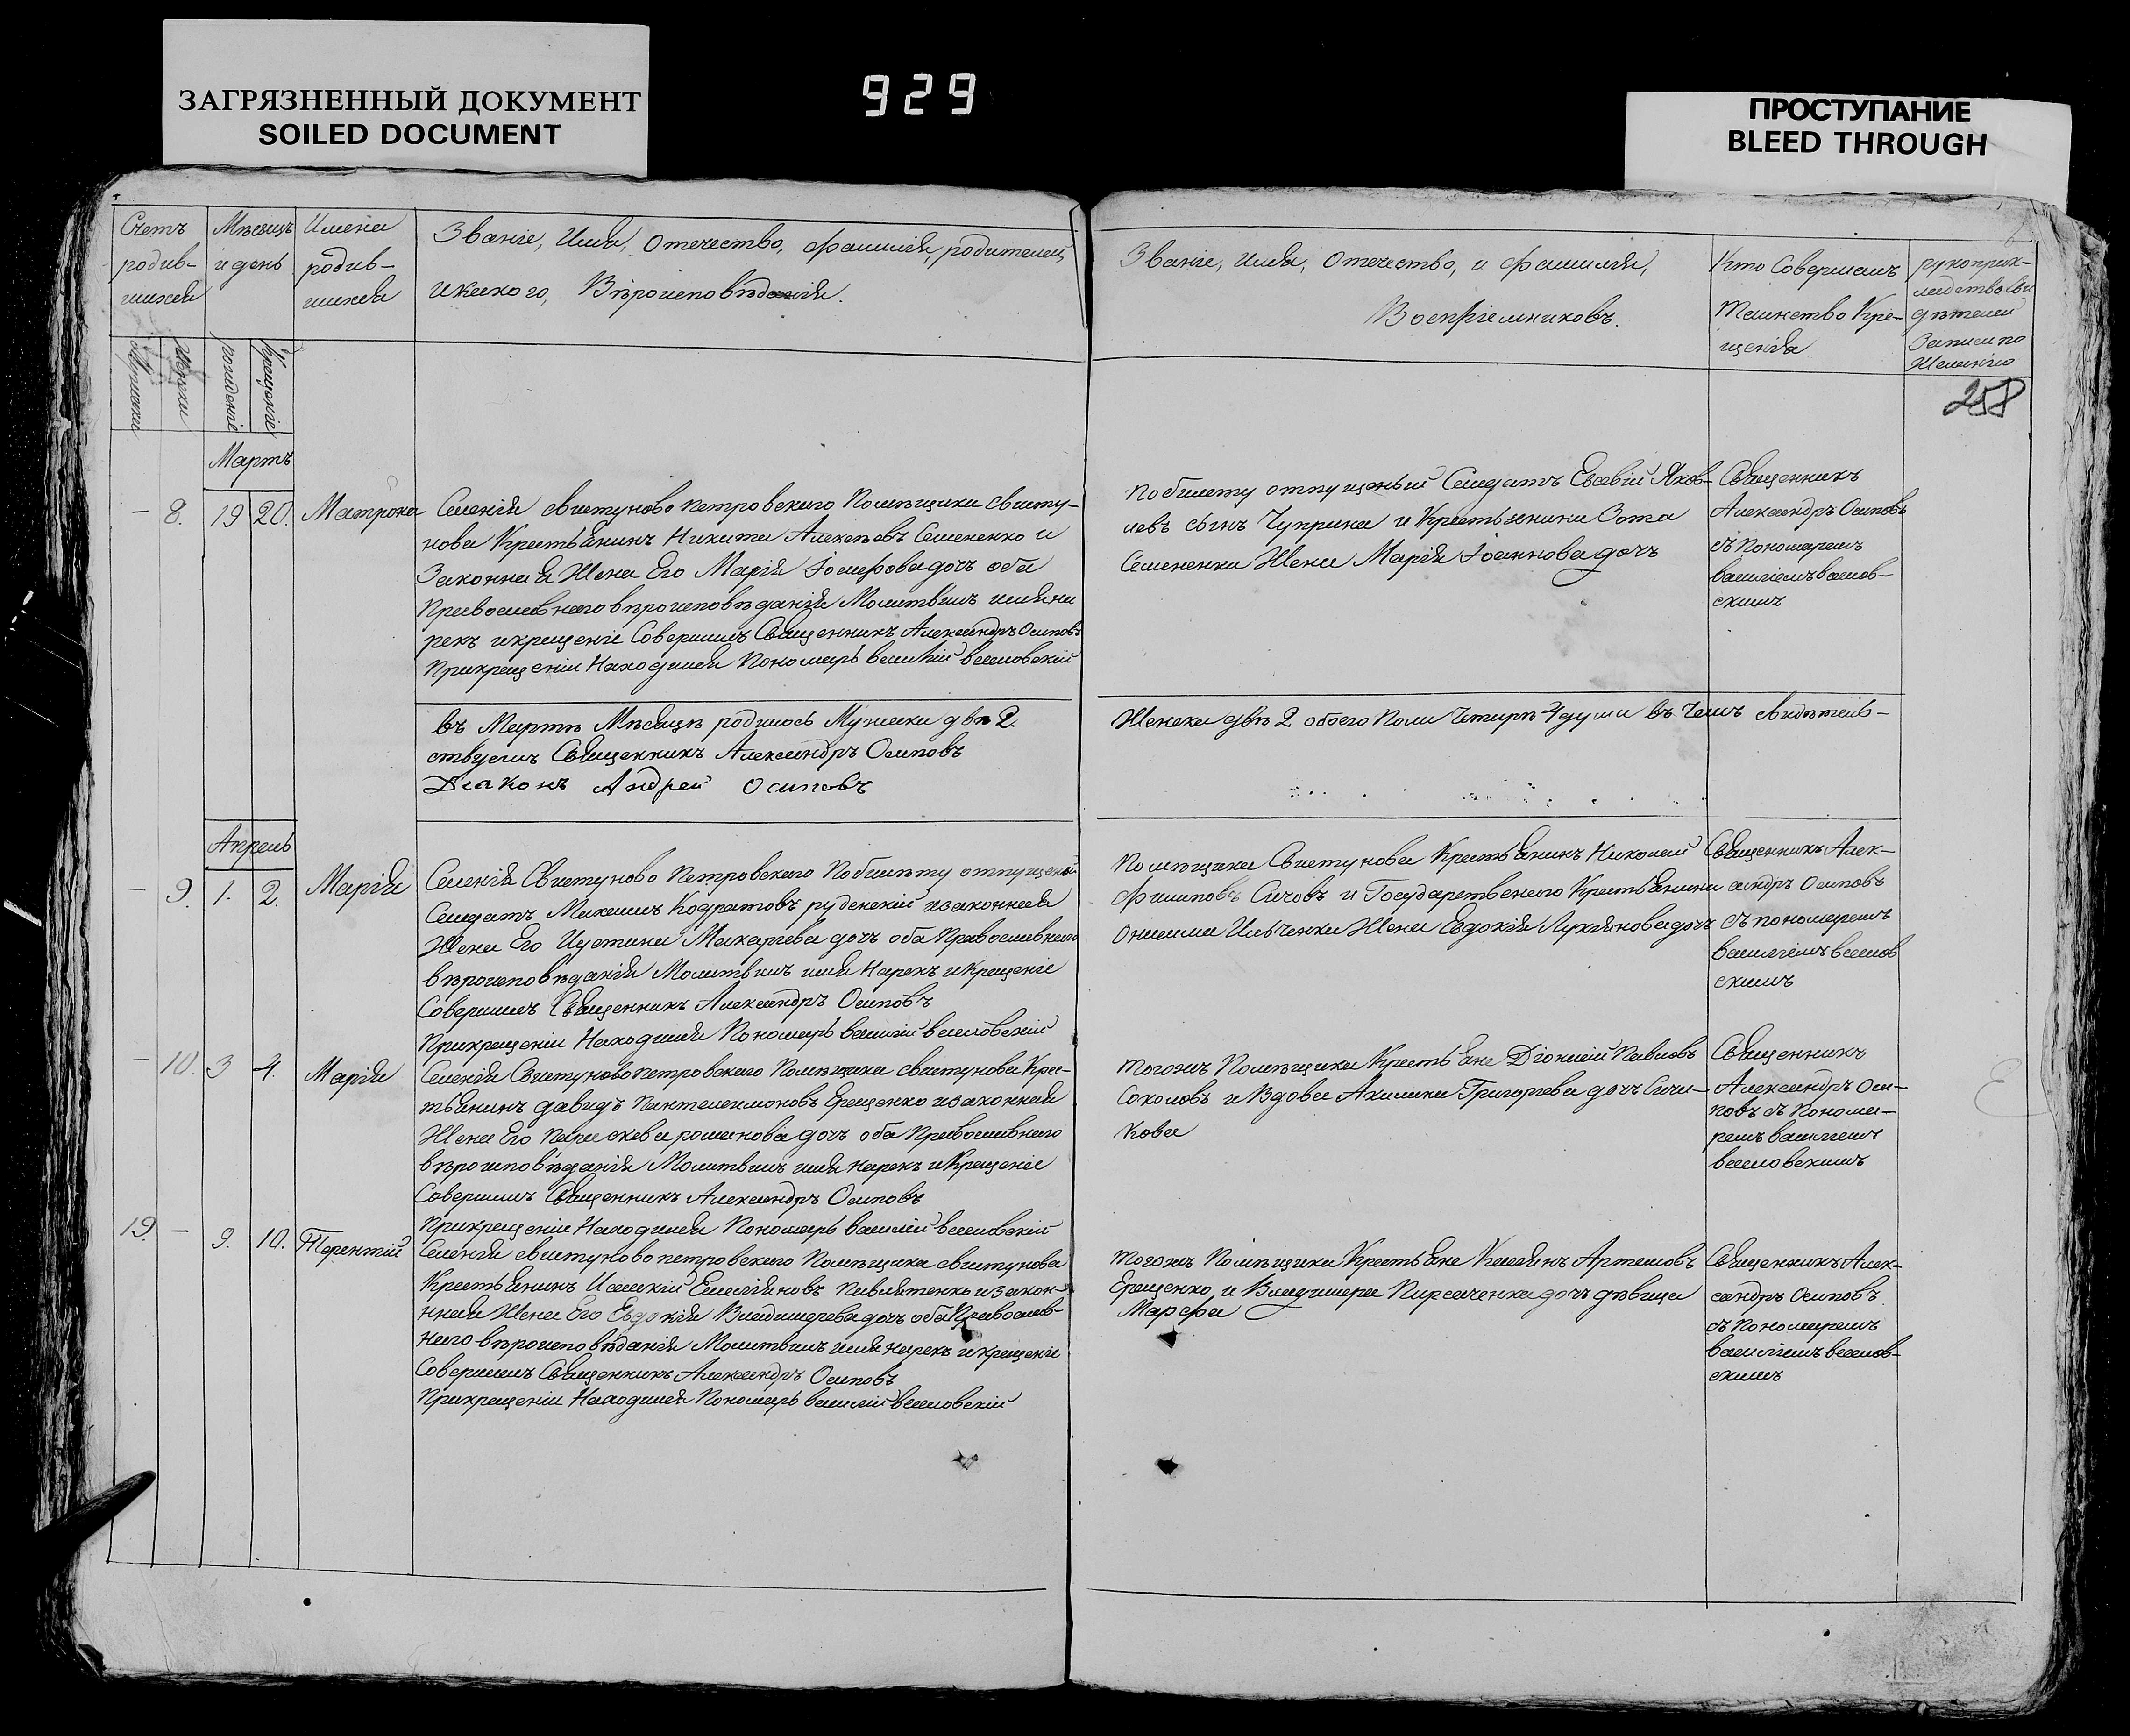 ЗАГРЯЗНЕННЫЙ ДОКУМЕНТ
SOILED DOCUMENT
929
ПРОСТУПАНИЕ
BLEED THROUGH
Счетъ
родив-
шихся
Мѣсяцъ
и день
Имена
родив-
шихся
Званіе, Имя, Отечество, Фамилія, родителей,
и какого, Вѣроисповѣданія.
Званіе, Имя, Отечество, и Фамилія,
Воспріемниковъ.
Кто Совершалъ
Таинство Кре-
щенія
рукоприк-
ладство сви
дѣтелей
Записи по
Желанію
Мужска
Женски
рожденіе
Крещеніе
258
Мартъ
— 8. 19 20. Матрона
Селенія Свистуново петровского Помѣщика Свисту-
нова Крестьянинъ Никита Алексѣевъ Семененко и
Законная Жена Его Марія Іосифова дочь оба
Православного вѣроисповѣданія Молитвилъ имя на
рекъ и крещеніе Совершилъ Священникъ Александръ Осиповъ
При крещеніи Находился Пономарь василій веселовскій
По билету отпущеный Салдатъ Евсевій Яков-
левъ сынъ Чуприна и Крестьянина Зота
Семененка Жена Марія Іоаннова дочь
Священникъ
Александръ Осиповъ
съ Пономаремъ
василіемъ веселов-
скимъ
въ Мартѣ Мѣсяцѣ родилось Мужска два 2.
Женска двѣ 2 обоего Пола Четырѣ 4 души въ Чемъ свидѣтель-
ствуемъ Священникъ Александръ Осиповъ
Діаконъ Андрей Осиповъ
Апрель
— 9. 1. 2. Марія
Селенія Свистуново Петровского По билѣту отпущеный
Салдатъ Михаилъ Кодратовъ руденскій и законная
Жена Его Иустина Макаріева дочь оба Православного
вѣроисповѣданія Молитвилъ имя Нарекъ и Крещеніе
Совершилъ Священникъ Александръ Осиповъ
При крещеніи Находился Пономарь василій веселовскій
Помѣщика Свистунова Крестьянинъ Николай
Филиповъ Сичовъ и Государственого Крестьянина
Онисима Ильченка Жена Евдокія Лукіянова дочь
Священникъ Алек-
сандръ Осиповъ
съ пономаремъ
василіемъ веселов
скимъ
— 10. 3 4. Марія
Селенія Свистуново петровского Помѣщика свистунова Крес-
тьянинъ давидъ Пантелеимоновъ Ерещенко и законная
Жена Его Параскева романова дочь оба Православного
вѣроисповѣданія Молитвилъ имя нарекъ и Крещеніе
Совершилъ Священникъ Александръ Осиповъ
При крещеніи Находился Пономарь василій веселовскій
тогожъ Помѣщика Крестьяне Діонисій Павловъ
Соколовъ и Вдова Акилина Григоріева дочь Сичи-
кова
Священникъ
Александръ Оси-
повъ съ Понома-
ремъ василіемъ
веселовскимъ
19. — 9. 10. Терентій
Селенія свистуново петровского Помѣщика свистунова
Крестьянинъ Исакій Емеліяновъ Павлятенко и закон-
нная Жена Его Евдокія Владимерева дочь оба Православ-
ного вѣроисповѣданія Молитвилъ имя нарекъ и крещеніе
Совершилъ Священникъ Александръ Осиповъ
При крещеніи Находился Пономарь василій веселовскій
тогожъ Помѣщика Крестьяне Касіянъ Артемовъ
Ерещенко, и Владимера дочь дѣвица
Марфа
Священникъ Алек-
сандръ Осиповъ
съ Пономаремъ
василіемъ веселов-
скимъ